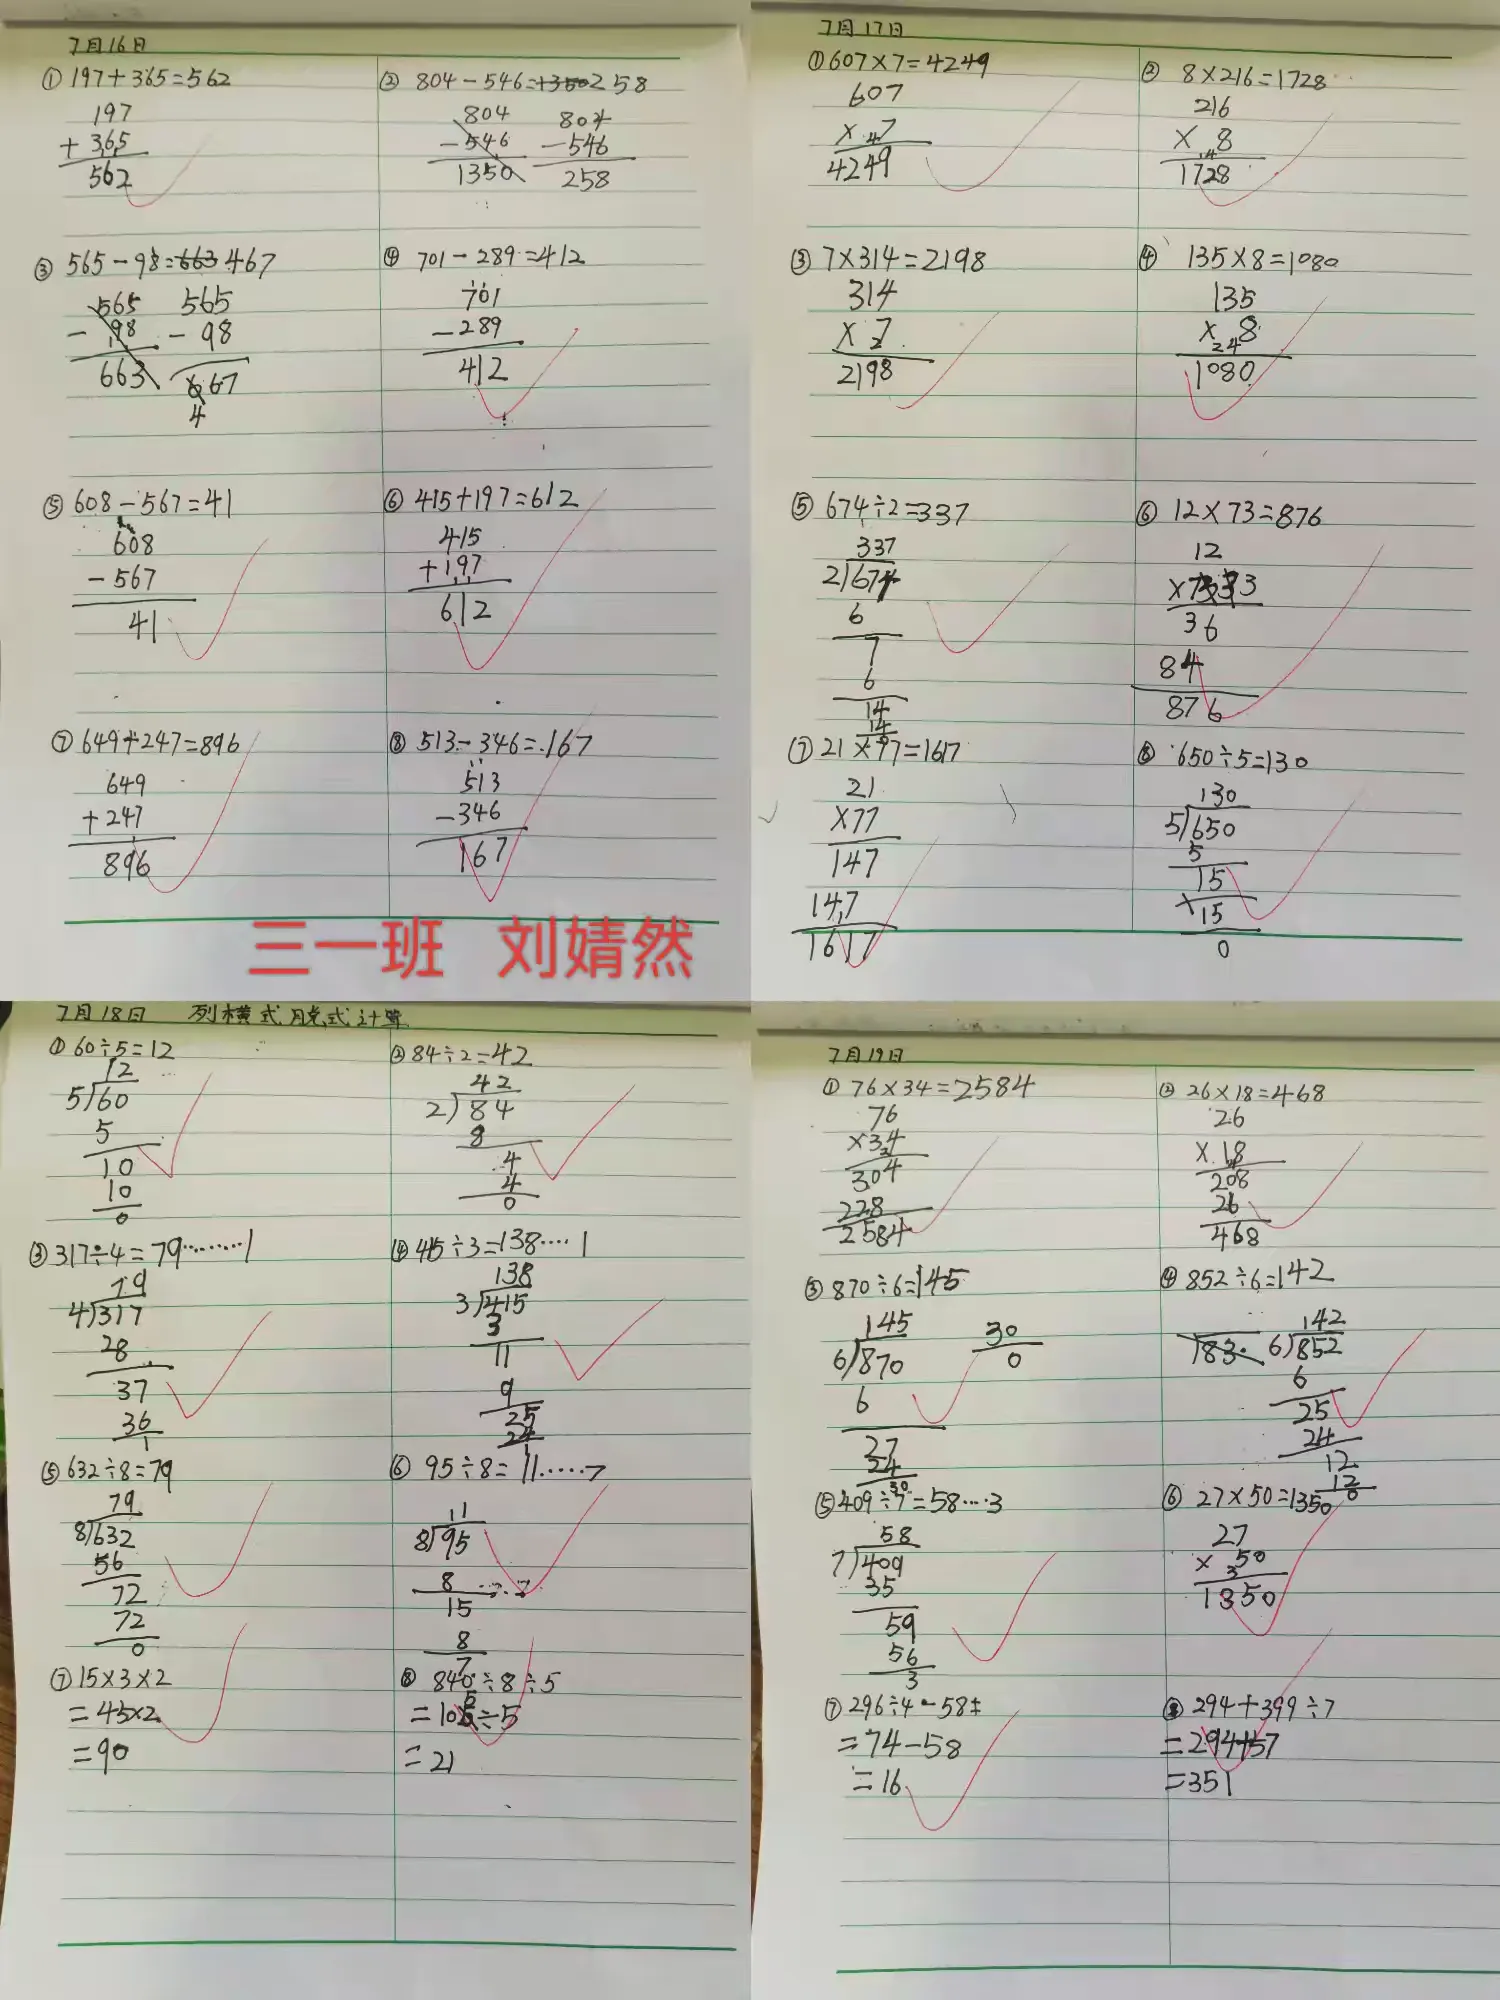 7月16日
① 197+365=562
197
+365
562
② 804-546=1350 258
804
-546
1350
804
-546
258
③ 565-98=663 467
565
-98
663
565
-98
667
4
④ 701-289=412
701
-289
412
⑤ 608-567=41
608
-567
41
⑥ 415+197=612
415
+197
612
⑦ 649+247=896
649
+247
896
⑧ 513-346=167
513
-346
167
三一班 刘婧然
7月17日
① 607×7=4249
607
× 7
4
4249
② 8×216=1728
216
× 8
1 4
1728
③ 7×314=2198
314
× 7
2
2198
④ 135×8=1080
135
× 8
2 4
1080
⑤ 674÷2=337
337
2)674
6
7
6
14
14
0
⑥ 12×73=876
12
×73
36
84
876
⑦ 21×77=1617
21
×77
147
147
1617
⑧ 650÷5=130
130
5)650
5
15
15
0
7月18日 列横式脱式计算
① 60÷5=12
12
5)60
5
10
10
0
② 84÷2=42
42
2)84
8
4
4
0
③ 317÷4=79………1
79
4)317
28
37
36
1
④ 415÷3=138……1
138
3)415
3
11
9
25
24
1
⑤ 632÷8=79
79
8)632
56
72
72
0
⑥ 95÷8=11……7
11
8)95
8
15
8
7
⑦ 15×3×2
=45×2
=90
⑧ 840÷8÷5
=105÷5
=21
7月19日
① 76×34=2584
76
×34
2
304
228
2584
② 26×18=468
26
×18
4
208
26
468
③ 870÷6=145
145
6)870
6
27
24
30
30
0
④ 852÷6=142
183
142
6)852
6
25
24
12
12
0
⑤ 409÷7=58……3
58
7)409
35
59
56
3
⑥ 27×50=1350
27
× 50
3
1350
⑦ 296÷4-58=
=74-58
=16
⑧ 294+399÷7
=294+57
=351